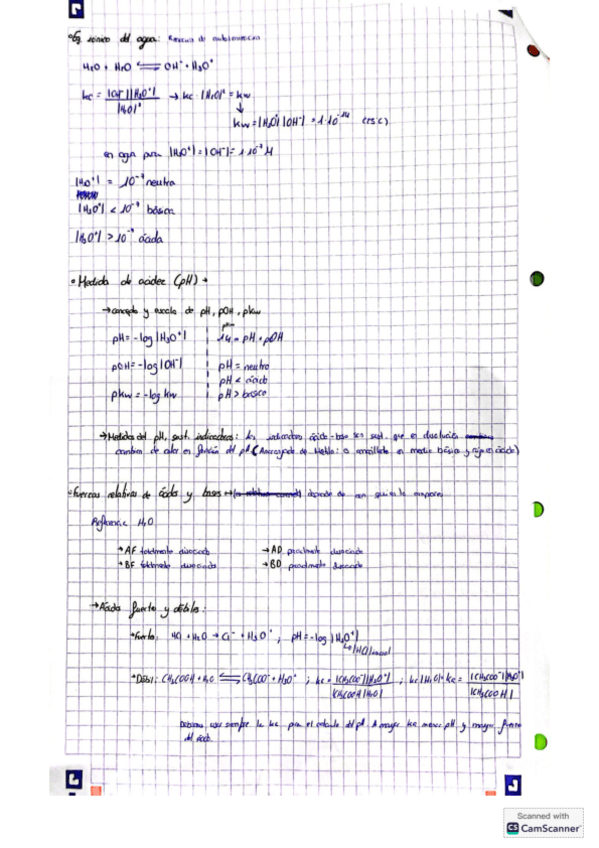 • Eq. iónico del agua: Reacción de autoionización
H₂O + H₂O ⇌ OH⁻ + H₃O⁺
kc = |OH⁻||H₃O⁺| / |H₂O|² → kc · |H₂O|² = kw
↓
kw = |H₃O⁺||OH⁻| = 1·10⁻¹⁴ (25ºC)
en agua pura |H₃O⁺| = |OH⁻| = 1·10⁻⁷ M
|H₃O⁺| = 10⁻⁷ neutra
|H₃O⁺| < 10⁻⁷ básica
|H₃O⁺| > 10⁻⁷ ácida
• Medida de acidez (pH) →
→ concepto y escala de pH, pOH, pkw
pH = -log |H₃O⁺|
pkw
14 = pH + pOH
pOH = -log |OH⁻|
pH = neutro
pH < ácido
pkw = -log kw
pH > básico
→ Medidas del pH, sust. indicadoras: los indicadores ácido-base son sust. que en disolución
cambian de color en función del pH (Anaranjado de Metilo: amarillento en medio básico y rojo en ácido)
• Fuerzas relativas de ácidos y bases → depende de con quien la compares
Referencia H₂O
→ AF totalmente disociado
→ AD parcialmente disociado
→ BF totalmente disociada
→ BD parcialmente disociada
→ Ácido fuerte y débiles:
→ Fuerte: HCl + H₂O → Cl⁻ + H₃O⁺ ; pH = -log |H₃O⁺|
↳ |HCl| inicial
→ Débil: CH₃COOH + H₂O ⇌ CH₃COO⁻ + H₃O⁺ ; kc = |CH₃COO⁻||H₃O⁺| / |CH₃COOH||H₂O| ; kc |H₂O| = ka = |CH₃COO⁻||H₃O⁺| / |CH₃COOH|
Debemos usar siempre la ka para el cálculo del pH. A mayor ka menor pH y mayor fuerza
del ácido.
Scanned with
CS CamScanner